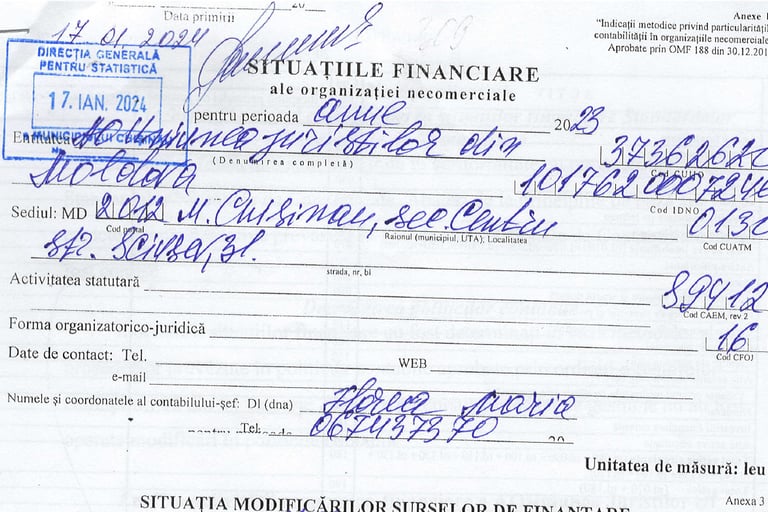 20
Data primirii
17 01 2024
Anexe 1
"Indicații metodice privind particularități
contabilității în organizațiile necomerciale
Aprobate prin OMF 188 din 30.12.201
DIRECȚIA GENERALĂ
PENTRU STATISTICĂ
17. IAN. 2024
MUNICIPIULUI
SITUAȚIILE FINANCIARE
ale organizației necomerciale
pentru perioada anue 2023
Entitatea AO Uniunea juriștilor din 3736262
(Denumirea completă)
Cod CUIÎO
Moldova
Cod IDNO
Sediul: MD 2012 M. Chișinau, sec. Centru 0130
Cod poștal
Raionul (municipiul, UTA), Localitatea
Cod CUATM
str. 31.
strada, nr, bl
Activitatea statutară 89412
Cod CAEM, rev 2
Forma organizatorico-juridică 16
Cod CFOJ
Date de contact: Tel. WEB
e-mail
Numele și coordonatele al contabilului-șef: Dl (dna) Florea Maria
Tel: 067437370
20
Unitatea de măsură: leu
Anexa 3
SITUAȚIA MODIFICĂRILOR SURSELOR DE FINANȚARE